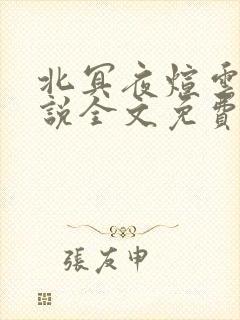 北冥夜煊雲
說全文免費
張友申